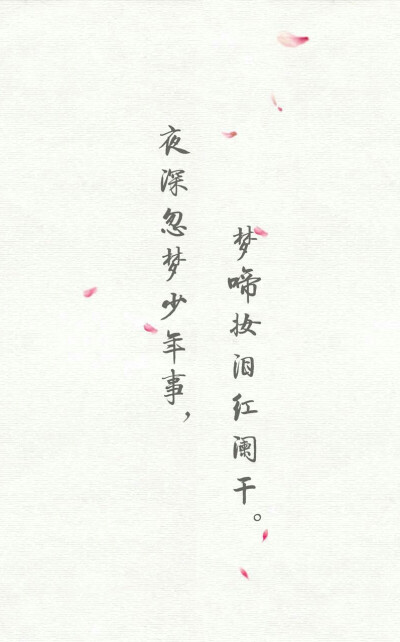 夜深忽梦少年事，
梦啼妆泪红阑干。